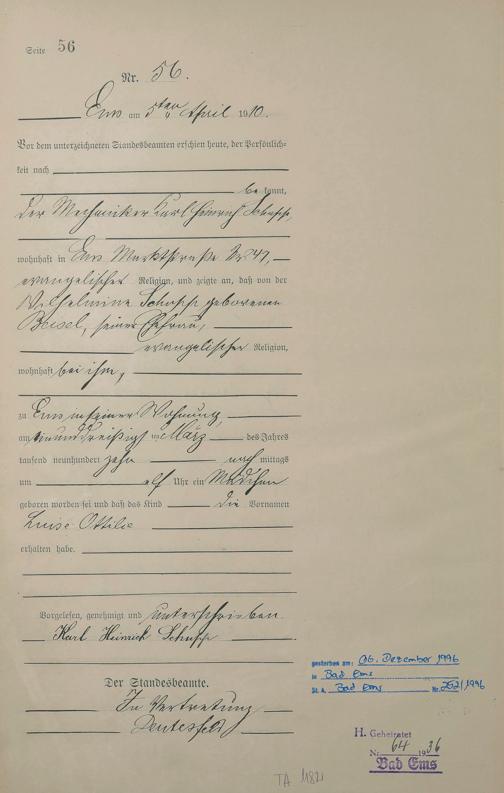 Seite 56
Nr. 56.
Ems am 5ten April 1910.
Vor dem unterzeichneten Standesbeamten erschien heute, der Persönlich-
keit nach
be kannt,
der Mechaniker Karl Heinrich
wohnhaft in Ems Marktstraße Nr 47,
evangelischer Religion, und zeigte an, daß von der
Wilhelmine geborenen
Beisel, seiner Ehefrau,
evangelischer Religion,
wohnhaft bei ihm,
zu Ems in seiner Wohnung,
am einunddreißigsten März des Jahres
tausend neunhundert zehn nach mittags
um elf Uhr ein Mädchen
geboren worden sei und daß das Kind die Vornamen
Luise Ottilie
erhalten habe.
Vorgelesen, genehmigt und unterschrieben
Karl Heinrich
Der Standesbeamte.
In Vertretung
gestorben am: 06. Dezember 1996
in Bad Ems
St. A. Bad Ems Nr. 252/1996
H. Geheiratet
Nr. 64 1936
Bad Ems
TA 11821